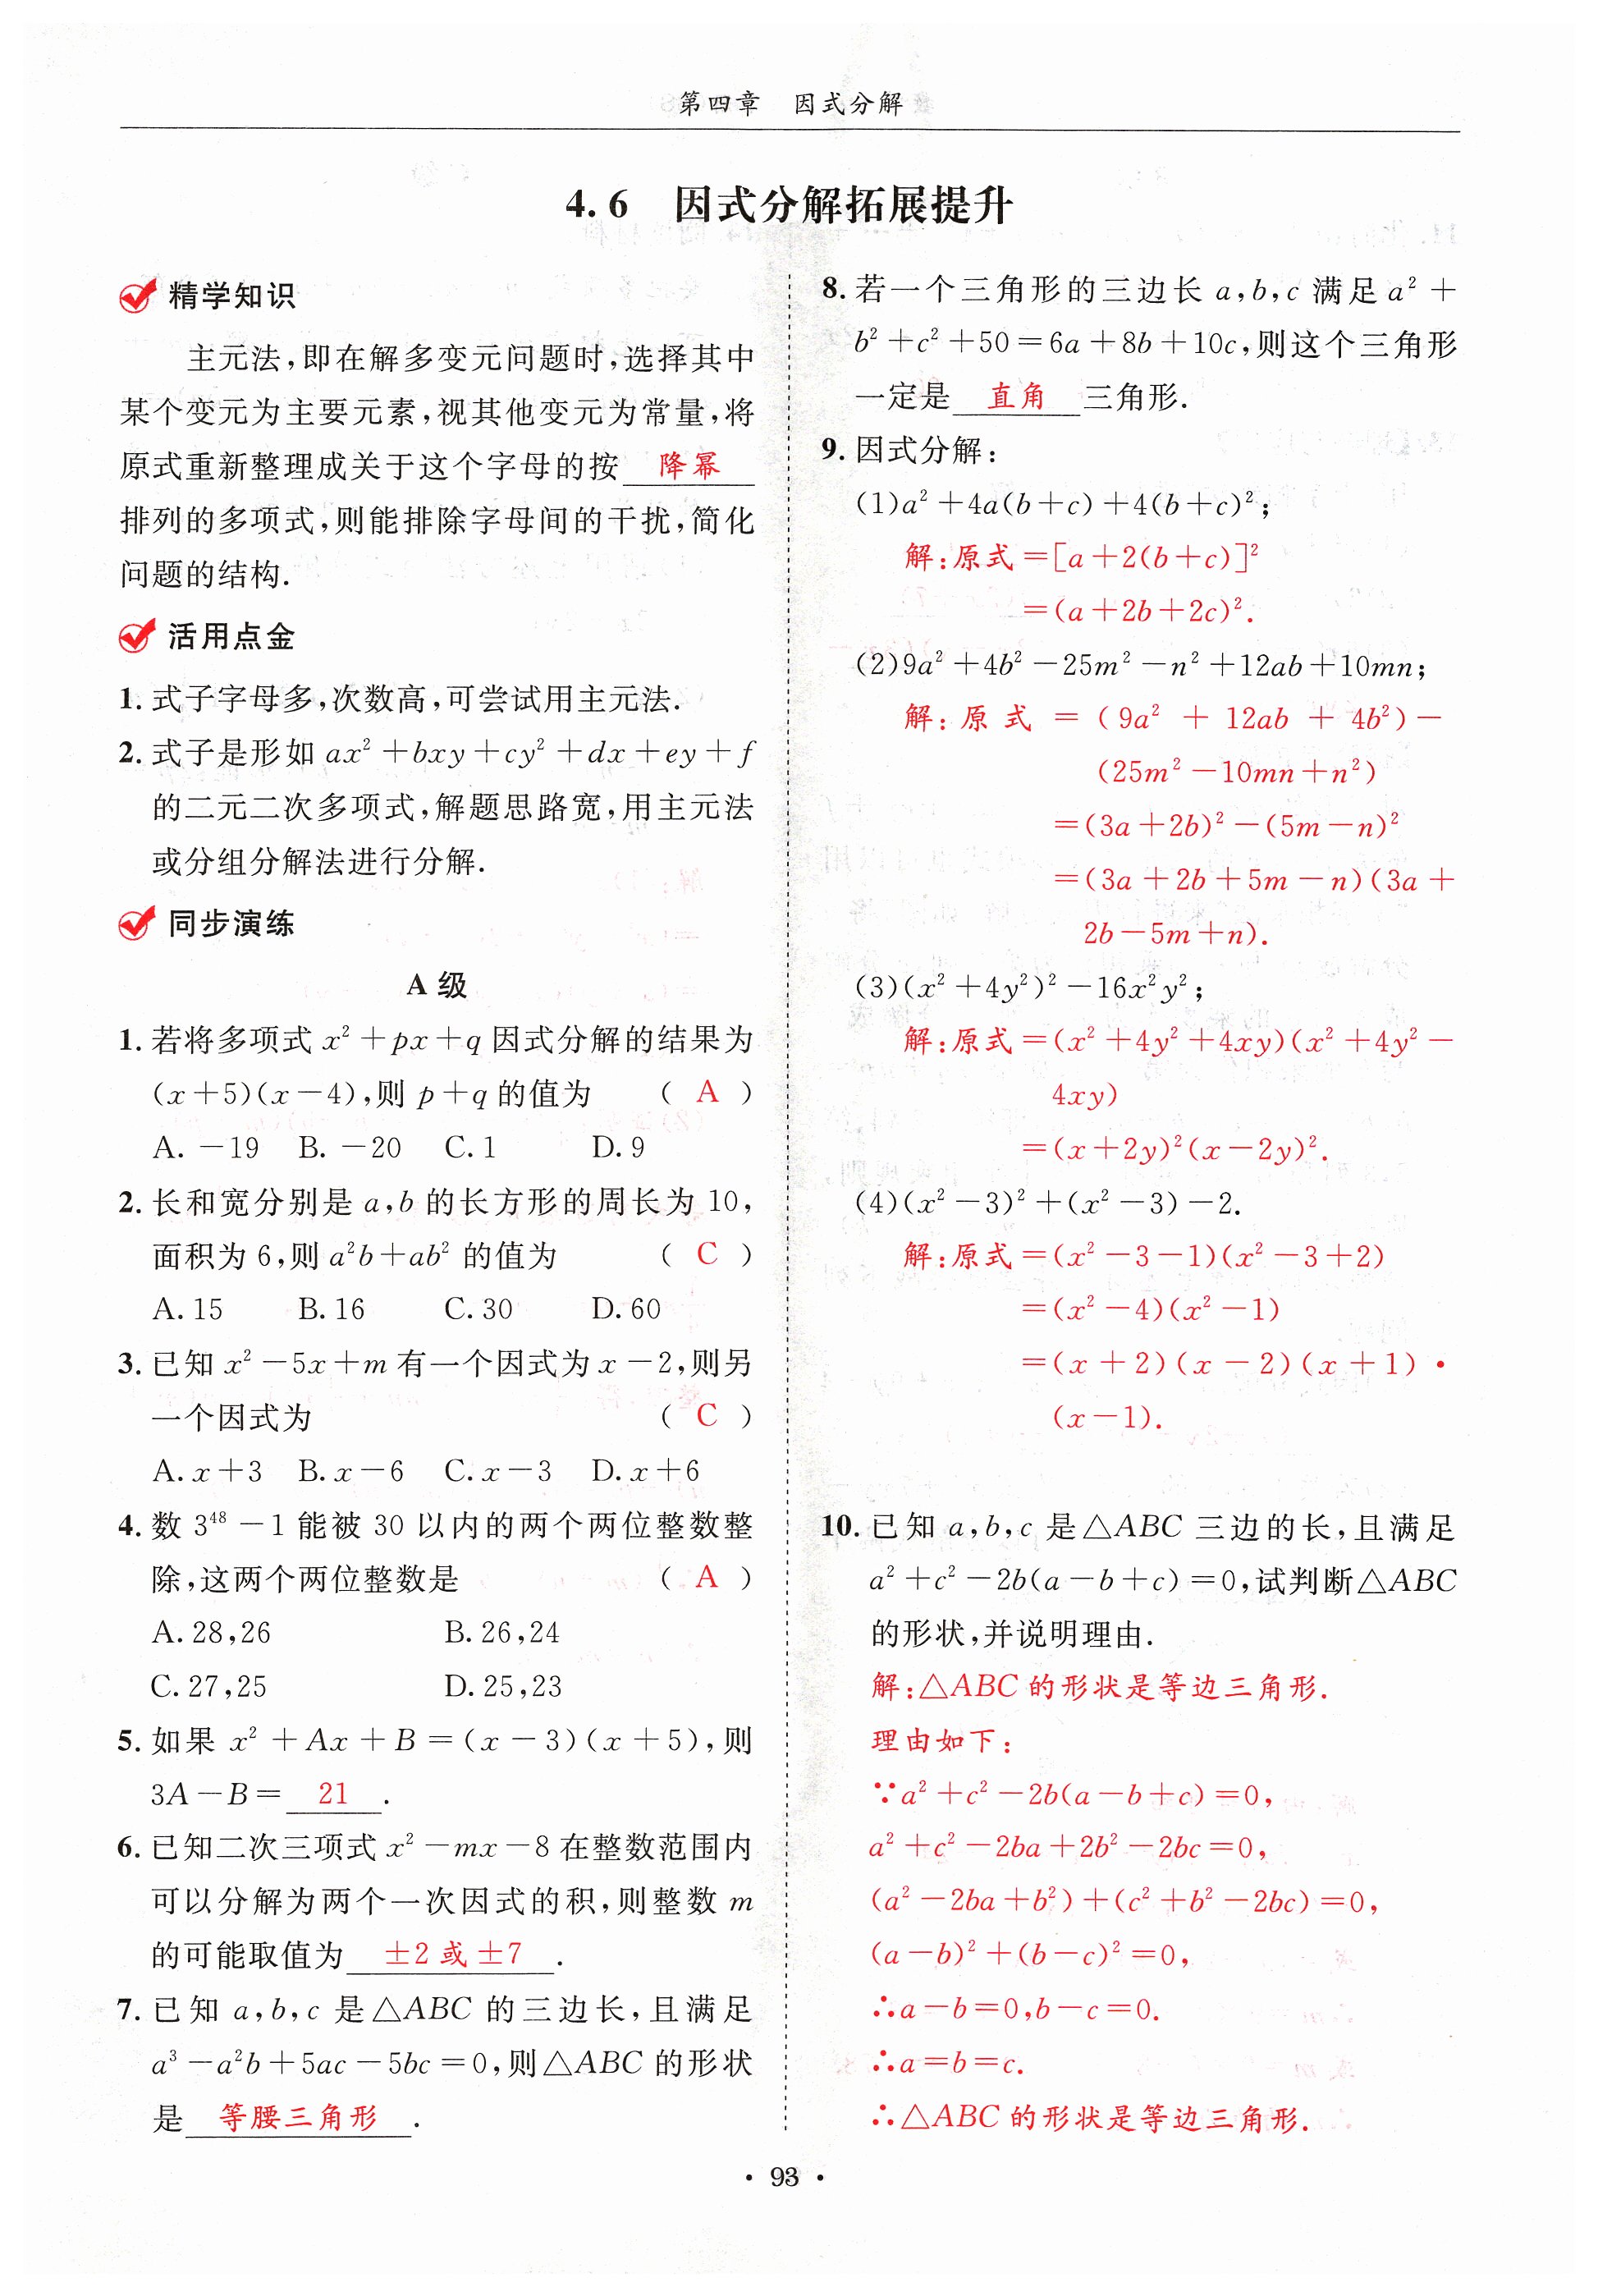 第四章　因式分解
4.6　因式分解拓展提升
精学知识
主元法,即在解多变元问题时,选择其中
某个变元为主要元素,视其他变元为常量,将
原式重新整理成关于这个字母的按 降幂
排列的多项式,则能排除字母间的干扰,简化
问题的结构.
活用点金
1. 式子字母多,次数高,可尝试用主元法.
2. 式子是形如 ax²+bxy+cy²+dx+ey+f
的二元二次多项式,解题思路宽,用主元法
或分组分解法进行分解.
同步演练
A 级
1. 若将多项式 x²+px+q 因式分解的结果为
(x+5)(x-4),则 p+q 的值为 ( A )
A. -19 B. -20 C. 1 D. 9
2. 长和宽分别是 a,b 的长方形的周长为 10,
面积为 6,则 a²b+ab² 的值为 ( C )
A. 15 B. 16 C. 30 D. 60
3. 已知 x²-5x+m 有一个因式为 x-2,则另
一个因式为 ( C )
A. x+3 B. x-6 C. x-3 D. x+6
4. 数 3⁴⁸-1 能被 30 以内的两个两位整数整
除,这两个两位整数是 ( A )
A. 28,26 B. 26,24
C. 27,25 D. 25,23
5. 如果 x²+Ax+B=(x-3)(x+5),则
3A-B= 21 .
6. 已知二次三项式 x²-mx-8 在整数范围内
可以分解为两个一次因式的积,则整数 m
的可能取值为 ±2 或 ±7 .
7. 已知 a,b,c 是△ABC 的三边长,且满足
a³-a²b+5ac-5bc=0,则△ABC 的形状
是 等腰三角形 .
8. 若一个三角形的三边长 a,b,c 满足 a²+
b²+c²+50=6a+8b+10c,则这个三角形
一定是 直角 三角形.
9. 因式分解:
(1)a²+4a(b+c)+4(b+c)²;
解:原式=[a+2(b+c)]²
=(a+2b+2c)².
(2)9a²+4b²-25m²-n²+12ab+10mn;
解:原式=(9a²+12ab+4b²)-
(25m²-10mn+n²)
=(3a+2b)²-(5m-n)²
=(3a+2b+5m-n)(3a+
2b-5m+n).
(3)(x²+4y²)²-16x²y²;
解:原式=(x²+4y²+4xy)(x²+4y²-
4xy)
=(x+2y)²(x-2y)².
(4)(x²-3)²+(x²-3)-2.
解:原式=(x²-3-1)(x²-3+2)
=(x²-4)(x²-1)
=(x+2)(x-2)(x+1)·
(x-1).
10. 已知 a,b,c 是△ABC 三边的长,且满足
a²+c²-2b(a-b+c)=0,试判断△ABC
的形状,并说明理由.
解:△ABC 的形状是等边三角形.
理由如下:
∵a²+c²-2b(a-b+c)=0,
a²+c²-2ba+2b²-2bc=0,
(a²-2ba+b²)+(c²+b²-2bc)=0,
(a-b)²+(b-c)²=0,
∴a-b=0,b-c=0.
∴a=b=c.
∴△ABC 的形状是等边三角形.
· 93 ·